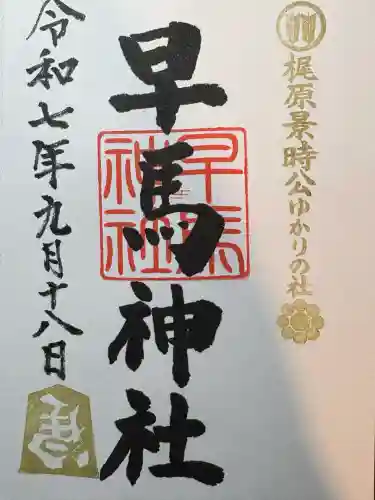 梶原景時公ゆかりの社
早馬神社
早馬神社
令和七年九月十八日